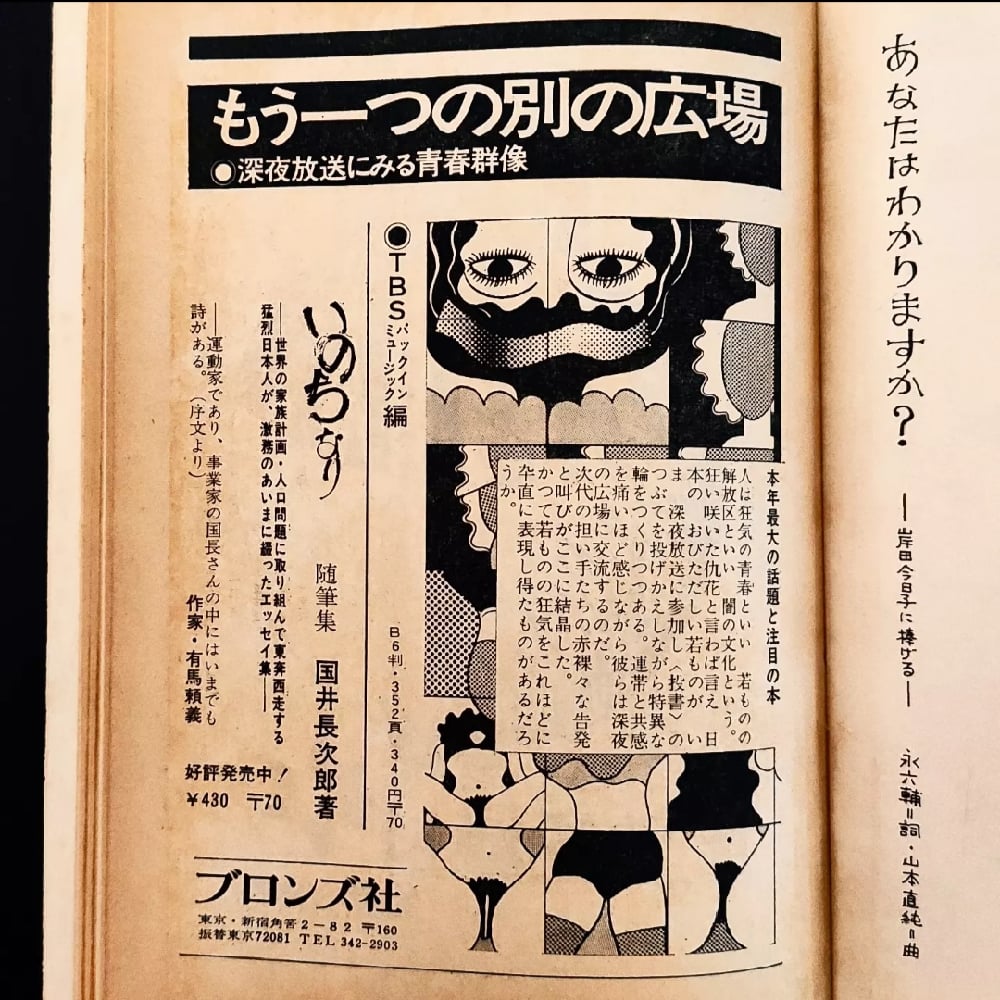 もう一つの別の広場
●深夜放送にみる青春群像
本年最大の話題と注目の本
人は狂気の青春といい 若ものの
解放区といい 闇の文化という。
狂い咲いた仇花と言わば言え 日
本の おびただしい若ものが い
ま 深夜放送に参加し（投書）の
つぶてを投げかえしながら特異な
輪をつくりつつある。連帯と共感
を痛いほど感じながら彼らは深夜
の広場に交流するのだ。
次代の担い手たちの赤裸々な告発
と叫びがここに結晶した。
かつて若ものの狂気をこれほどに
卒直に表現し得たものがあるだろ
うか。
●TBSパックインミュージック編
B6判・352頁・340円〒70
いのちなり 随筆集 国井長次郎著
――世界の家族計画・人口問題に取り組んで東奔西走する
猛烈日本人が、激務のあいまに綴ったエッセイ集――
――運動家であり、事業家の国長さんの中にはいまでも
詩がある。（序文より） 作家・有馬頼義
好評発売中！
￥430 〒70
ブロンズ社
東京・新宿角筈2－82 〒160
振替東京72081 TEL 342-2903
あなたはわかりますか？ ――岸田今日子に捧げる―― 永六輔＝詞・山本直純＝曲